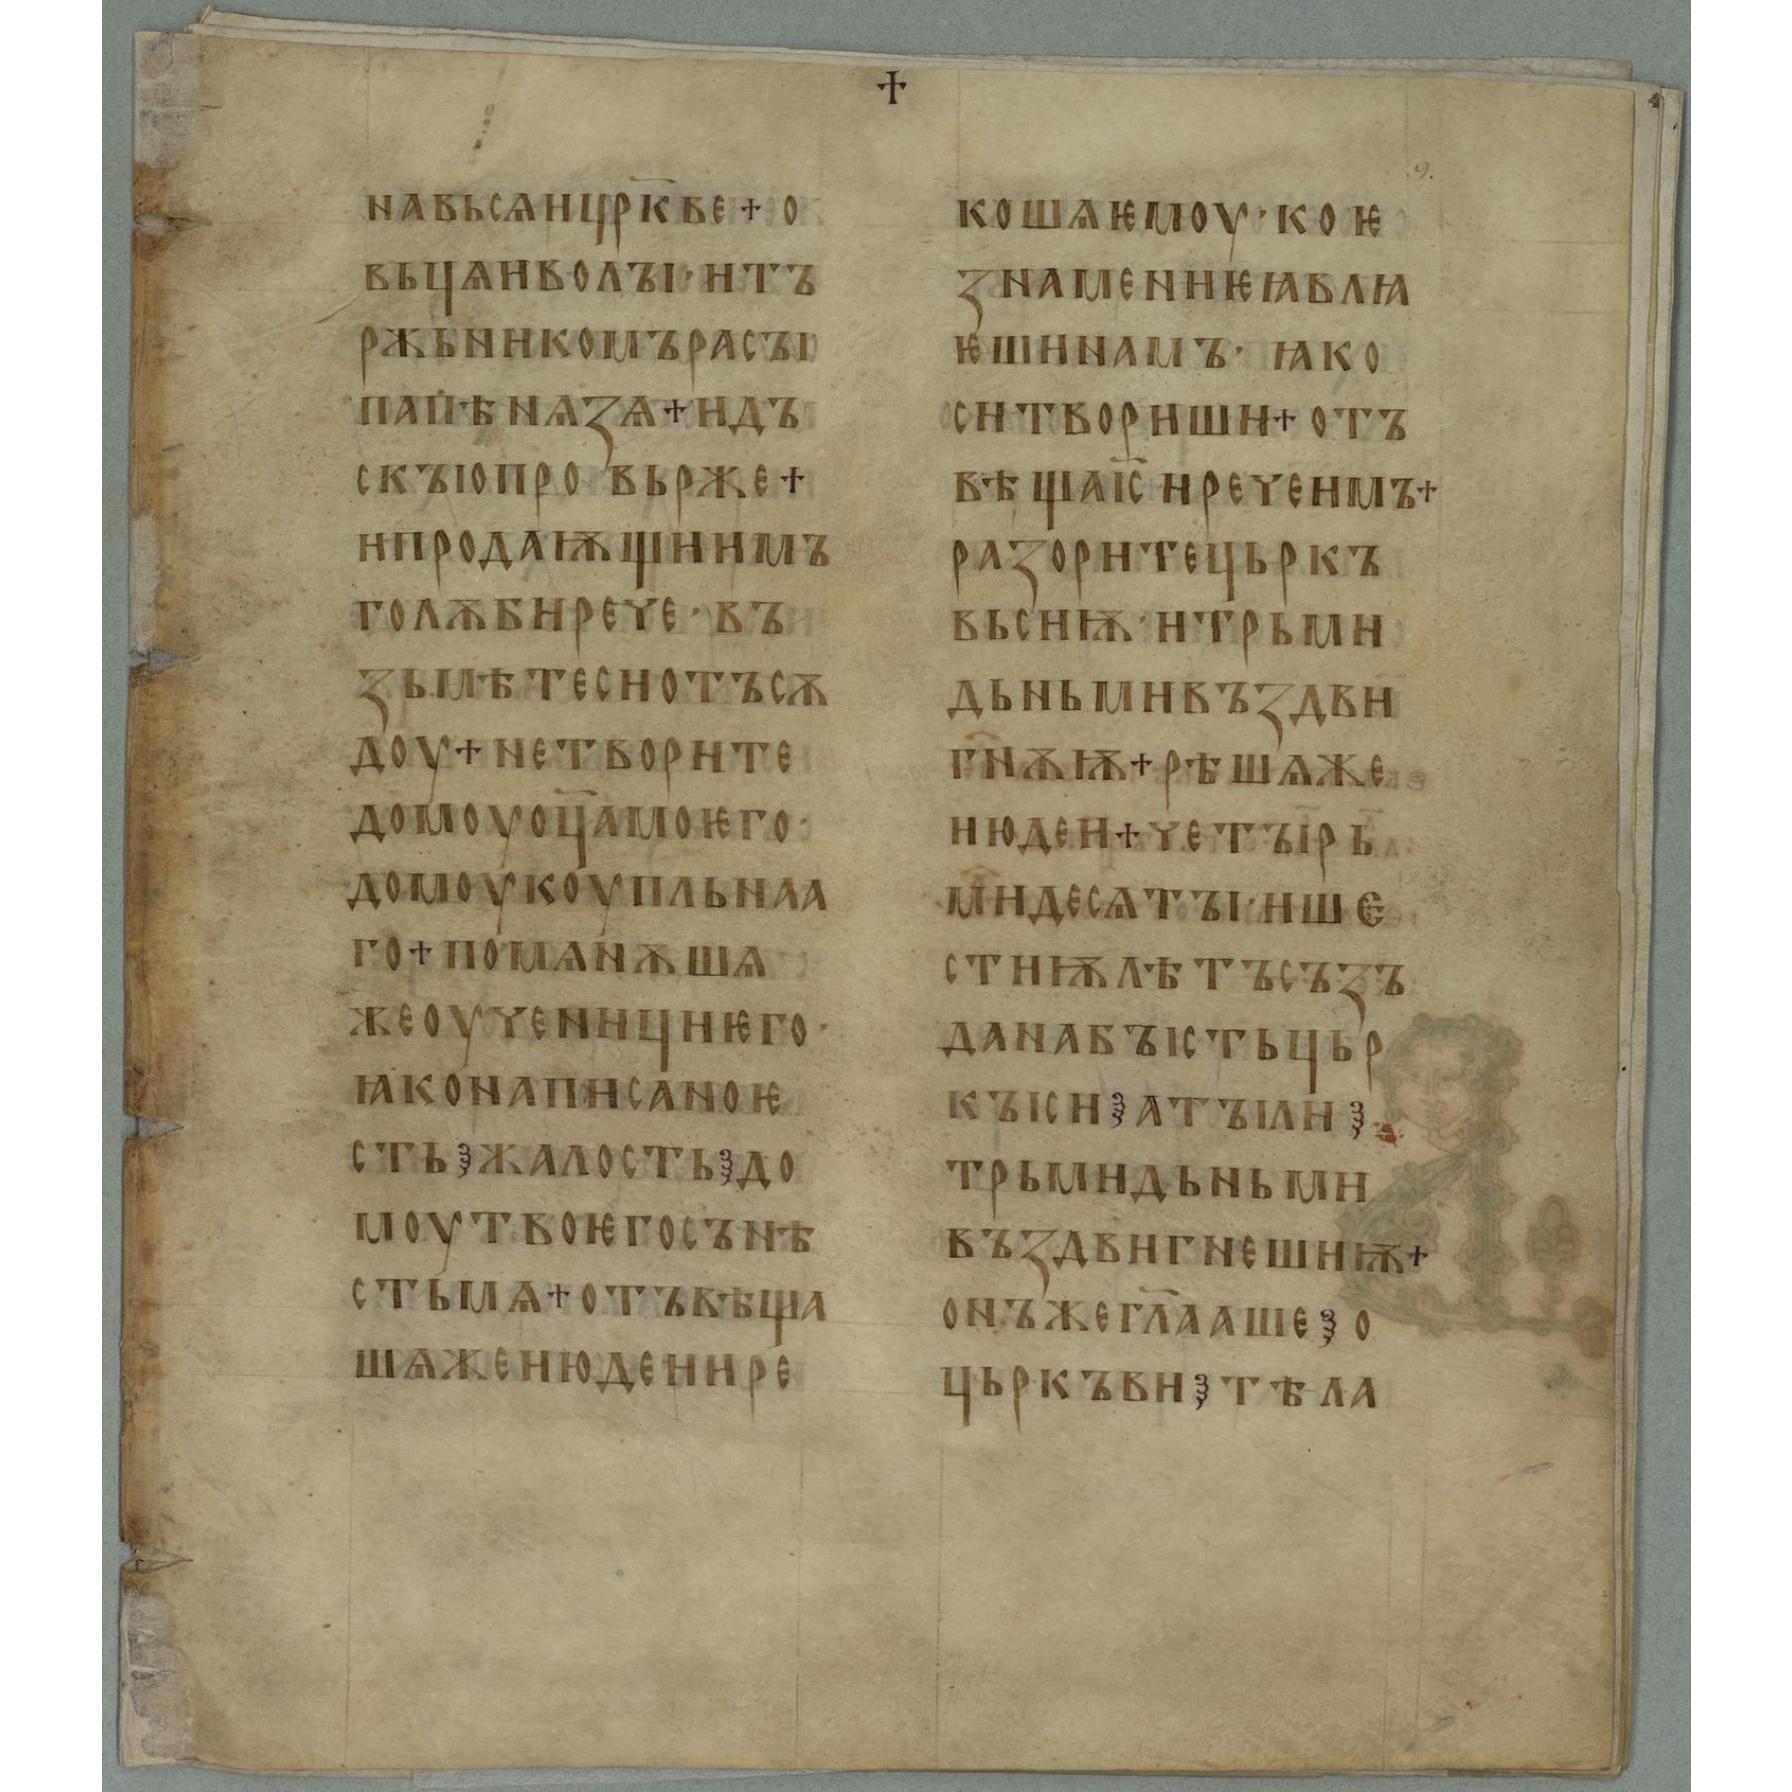 +
9.
на вьсѧ иц҃рк҃ве + о
вьцѧ и волъі · и тъ
ржьникомъ расъі
па пѣнѧзѧ + и дъ
скъі опровьрже +
и продаѭщиимъ
голѫби рече · въ
зьмѣте си отъ сѫ
доу + не творите
домоу оц҃а моѥго ·
домоу коупльнаа
го + помѧнѫшѧ
же оученици ѥго ·
ꙗко написано ѥ
сть ⁘ жалость ⁘ до
моу твоѥго сънѣ
сть мѧ + отъвѣща
шѧ же июдеи и ре
кошѧ ѥмоу · коѥ
знамениѥ ꙗвлꙗ
ѥши намъ · ꙗко
си твориши + отъ
вѣща іс҃ и рече имъ +
разорите цьркъ
вь сиѭ · и трьми
дьньми въздви
гнѫ ѭ + рѣшѧ же
июдеи + четъірь
ми десѧтъі · и ше
стиѭ лѣтъ съзъ
дана бъість цьр
къі си ⁘ а тъі ли ⁘
трьми дьньми
въздвигнеши ѭ +
онъ же гл҃ааше ⁘ о
цьркъви ⁘ тѣла